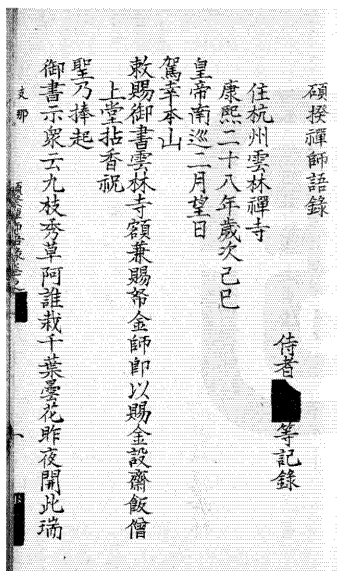 碩揆禪師語錄
侍者
等記錄
住杭州雲林禪寺
康熙二十八年歲次己巳
皇帝南巡二月望日
駕幸本山
敕賜御書雲林寺額兼賜帑金師即以賜金設齋飯僧
上堂拈香祝
聖乃捧起
御書示眾云九枝秀草阿誰栽千葉曇花昨夜開此瑞
支那
碩揆禪師語錄卷之
一